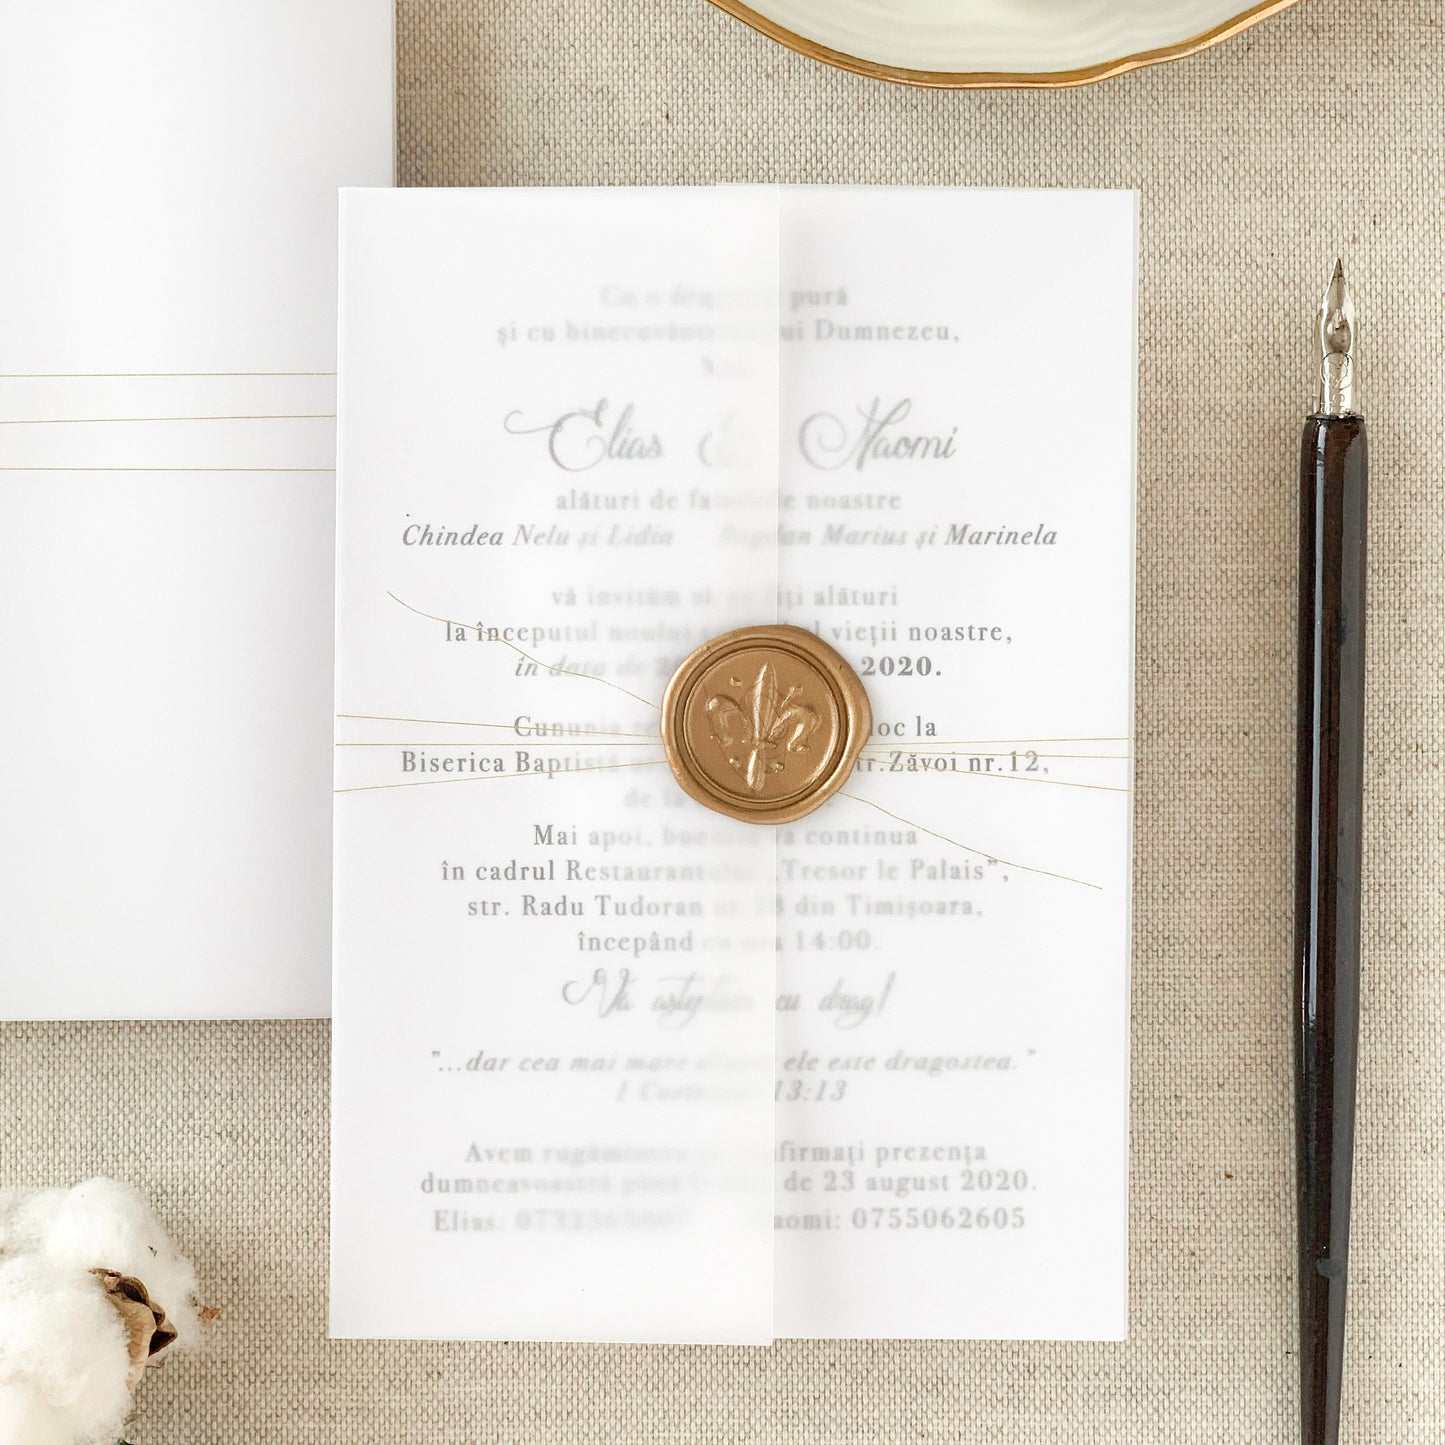 Cu o pură
și cu Dumnezeu,
Elias & Naomi
alături de noastre
Chindea Nelu și Lidia Bogdan Marius și Marinela
vă invităm alături
la începutul noului vieții noastre,
în data de 2020.
Cununia loc la
Biserica Baptistă str.Zăvoi nr.12,
de la
Mai apoi, va continua
în cadrul Restaurantului „Tresor le Palais”,
str. Radu Tudoran din Timișoara,
începând cu ora 14:00.
Vă așteptăm cu drag!
"...dar cea mai mare dintre ele este dragostea."
1 Corinteni 13:13
Avem rugămintea confirmați prezența
dumneavoastră până de 23 august 2020.
Elias: Naomi: 0755062605